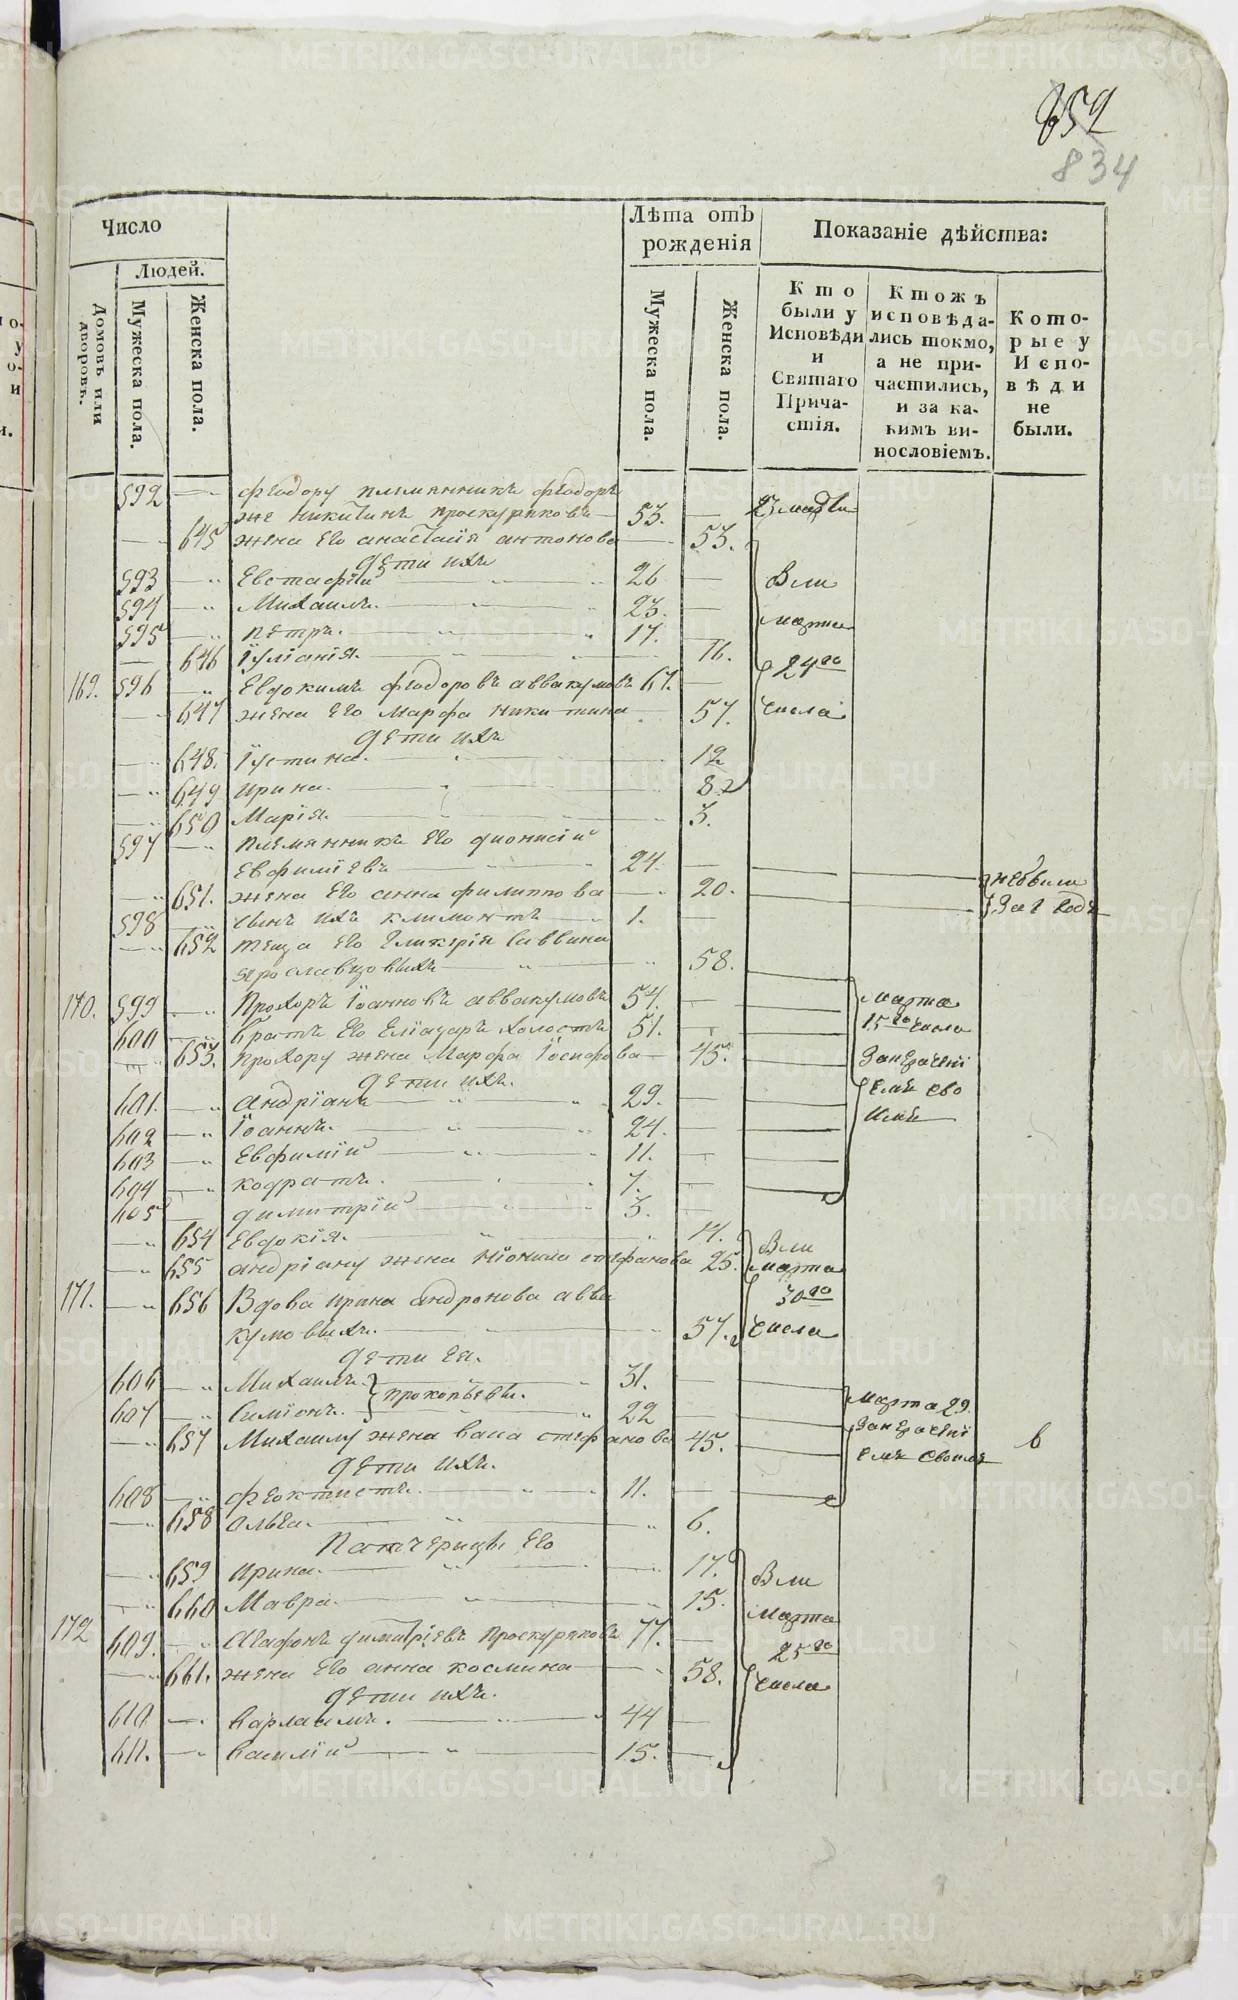 652
834
Число
Лѣта отъ рожденія
Показаніе дѣйства:
Людей.
Домовъ или дворовъ.
Мужеска пола.
Женска пола.
Мужеска пола.
Женска пола.
Кто были у Исповѣди и Святаго Причастія.
Ктожъ исповѣдались токмо, а не причастились, и за каким винословіемъ.
Которые у Исповѣди не были.
592 Феодору племянникъ Феодоръ
же Никитинъ Проскуряковъ 53.
645 жена Его Анастасия Антонова 53.
дети ихъ
593 Евстафий 26
594 Михаилъ. 23.
595 Петръ. 17.
646 Іулианія. 16.
169. 596 Евдокимъ Феодоровъ Аввакумовъ 67.
647 жена Его Марфа Никитина 57.
дети ихъ
648. Іустина. 12
649 Ирина. 8
650 Марія. 3.
597 Племянникъ Его Дионисий
Евфимиевъ 24.
651. жена Его Анна Филиппова 20.
598 сынъ ихъ Климонтъ 1.
652 теща Его Гликерія Саввина
Ярославцовыхъ 58.
170. 599 Прохоръ Іоанновъ Аввакумовъ 54.
600 Братъ Его Елиадаръ холостъ 51.
653. Прохору жена Марфа Іосифова 45.
дети ихъ.
601. Андріанъ 29.
602 Іоаннъ. 24.
603 Евфимий 11.
604 Кодратъ. 7.
605 Димитрій 3.
654 Евдокія. 14.
655 Андріану жена Стефанова 25.
171. 656 Вдова Ирина Андронова Авва
кумовыхъ. 57.
дети Ея.
606 Михаилъ. Прокопьевы. 31.
607 Симионъ. 22
657 Михаилу жена Васа Стефанова 45.
дети ихъ.
608 Феоктистъ. 11.
658 Ольга. 6.
Патчерицы Его
659 Ирина. 17.
660 Мавра. 15.
172 609. Агафонъ Димитріевъ Проскуряковъ 77.
661. жена Его Анна Космина 58.
дети ихъ.
610 Варлаамъ. 44
611. Василій 15.
марта
24го
числа
небыли
за 1 годъ
марта
15го числа
марта
30го
числа
марта 29.
в
марта
25го
числа
METRIKI.GASO-URAL.RU